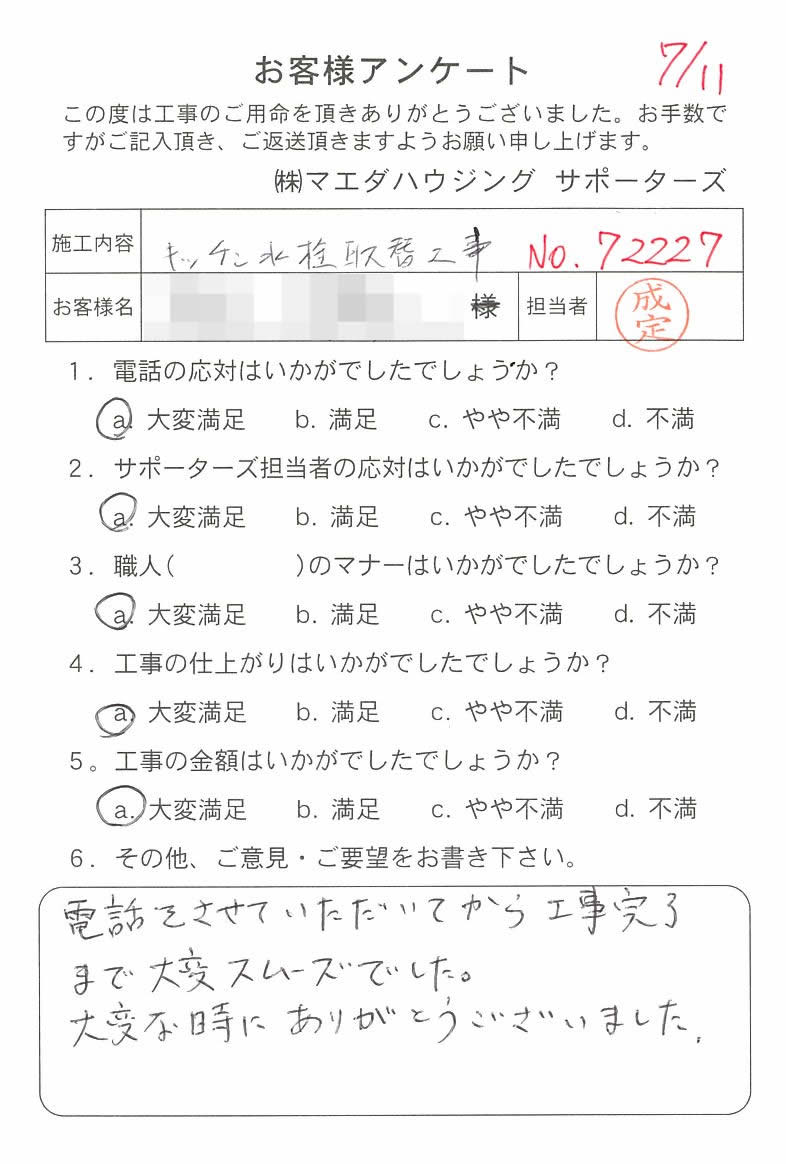 お客様アンケート
7/11
この度は工事のご用命を頂きありがとうございました。お手数で
すがご記入頂き、ご返送頂きますようお願い申し上げます。
㈱マエダハウジング サポーターズ
施工内容 キッチン水栓取替工事 No. 72227
お客様名 様 担当者 成定
1. 電話の応対はいかがでしたでしょうか？
a. 大変満足 b. 満足 c. やや不満 d. 不満
2. サポーターズ担当者の応対はいかがでしたでしょうか？
a. 大変満足 b. 満足 c. やや不満 d. 不満
3. 職人( )のマナーはいかがでしたでしょうか？
a. 大変満足 b. 満足 c. やや不満 d. 不満
4. 工事の仕上がりはいかがでしたでしょうか？
a. 大変満足 b. 満足 c. やや不満 d. 不満
5。工事の金額はいかがでしたでしょうか？
a. 大変満足 b. 満足 c. やや不満 d. 不満
6. その他、ご意見・ご要望をお書き下さい。
電話をさせていただいてから工事完了
まで大変スムーズでした。
大変な時にありがとうございました.